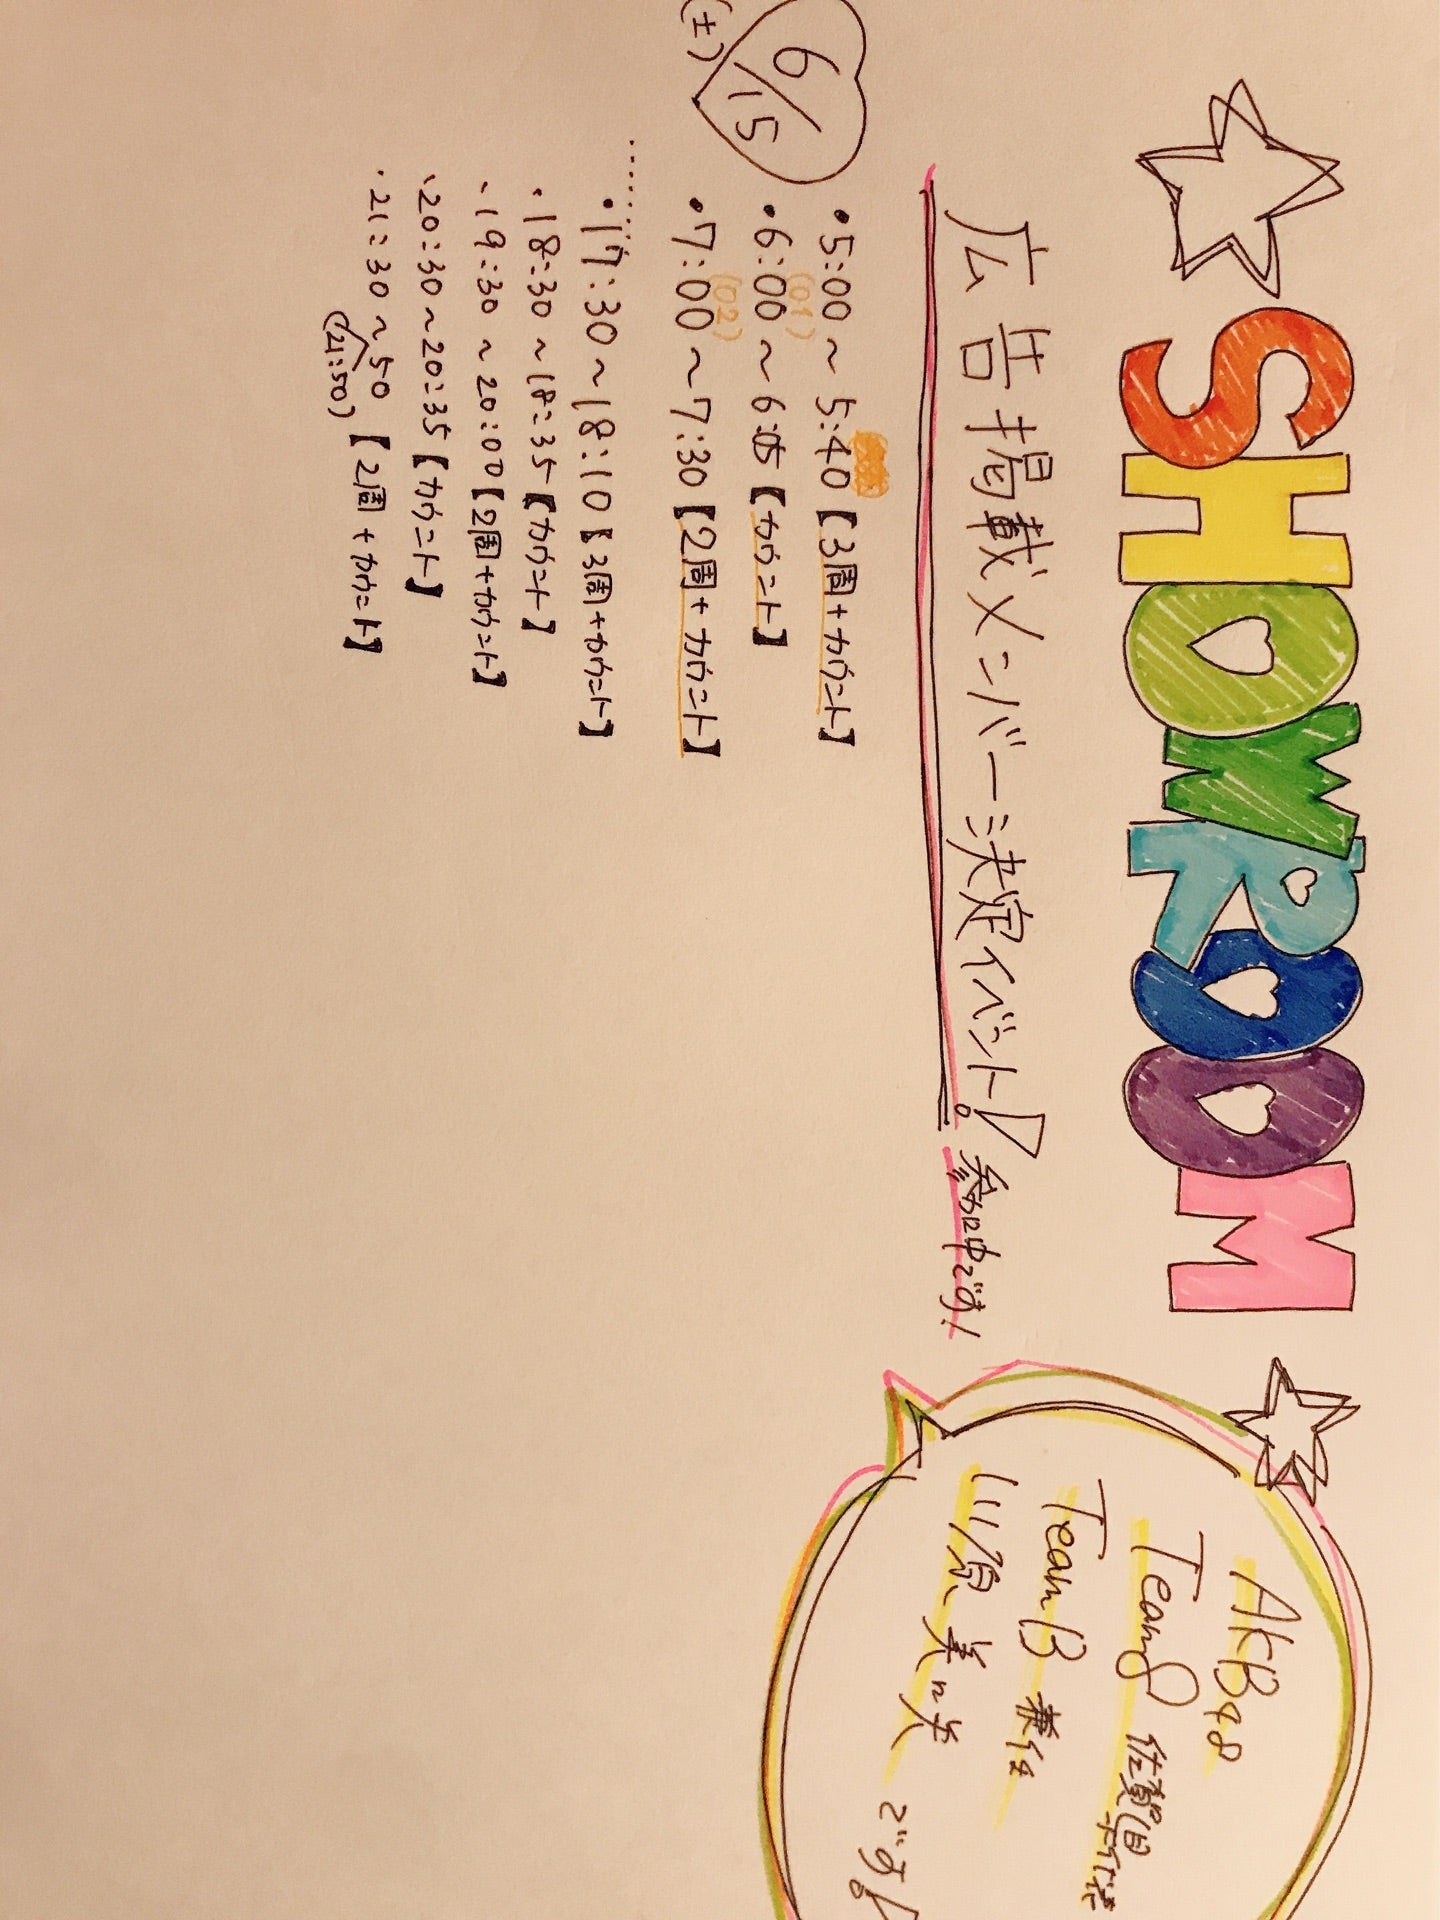 SHOWROOM
広告掲載メンバー決定イベント! 参加中です!
6/15
(土)
・5:00~5:40【3周+カウント】
(01)
・6:00~6:05【カウント】
(02)
・7:00~7:30【2周+カウント】
・17:30~18:10【3周+カウント】
・18:30~18:35【カウント】
・19:30~20:00【2周+カウント】
・20:30~20:35【カウント】
・21:30~50【2周+カウント】
(21:50)
AKB48
Team8 佐賀県代表
TeamB 兼任
川原美咲
です!